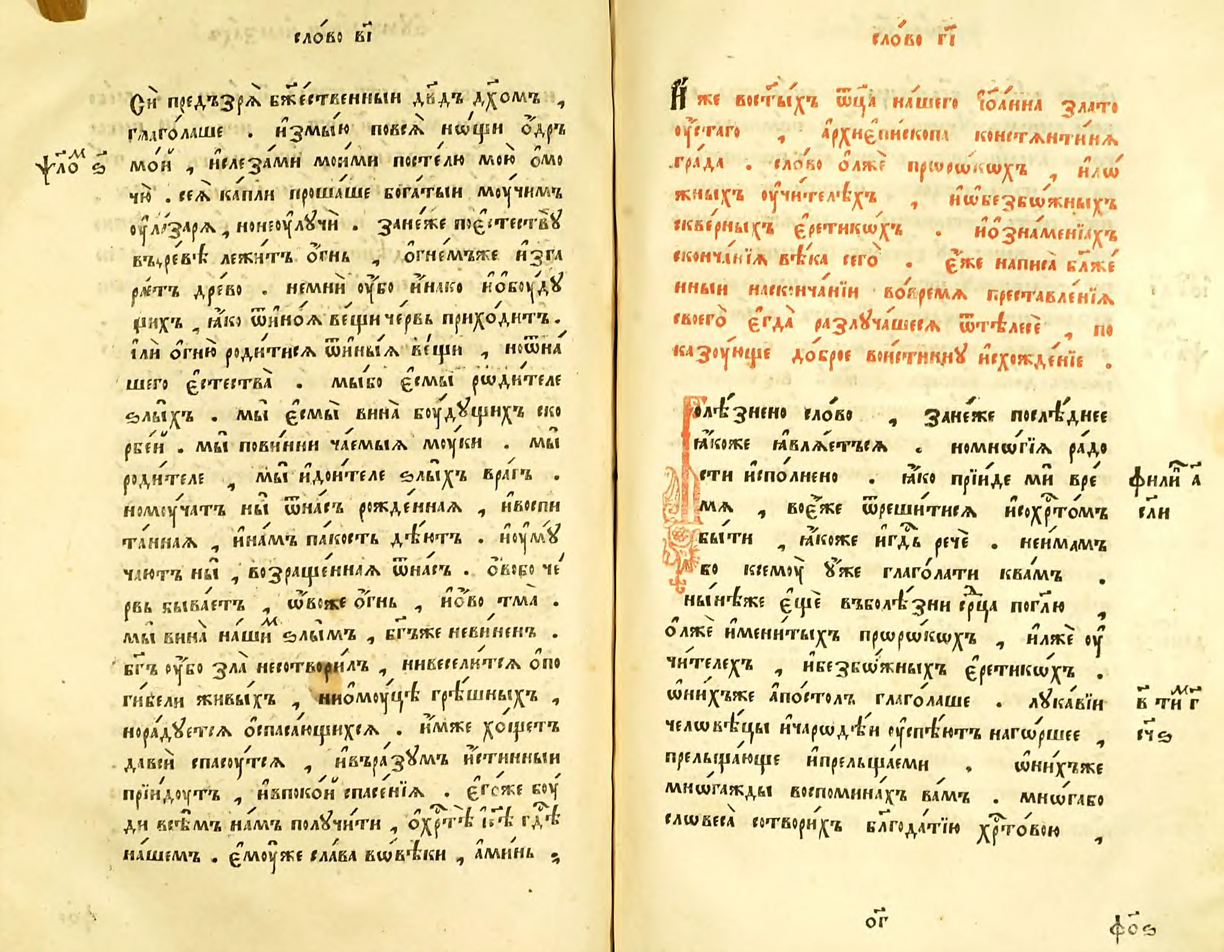 сло́во в҃і
Сѝ предъзрѧ̀ бж҃е́ственныи дв҃дъ дх҃омъ ,
глаго́лаше . и҆змы́ю повсѧ̀ но́щи ѻ҆́дръ
ѱало́м ѕ҃
мо́й , и҆слеза́ми мои́ми посте́лю мою̀ ѡ҆мо
чю̀ . сеѧ̀ ка́пли проша́ше бога́тыи моу́чимъ
ѹ҆ла́зарѧ , нонеѹ҆лꙋчѝ . зане́же пое҆стествꙋ̀
въдре́вѣ лежи́тъ ѻ҆́гнь , ѻ҆гне́мъже и҆зга
рѧ́етъ дре́во . немнѝ ѹ҆́бо и҆́нако и҆ѡ҆боу́дꙋ
щихъ , ꙗ҆́ко ѿи҆но́ѧ ве́щи че́рвь прихо́дитъ .
и҆лѝ ѻ҆гню̀ роди́тисѧ ѿи҆ны́ѧ ве́щи , ноѿна́
шего є҆стества̀ . мы́бо є҆смы̀ роди́теле
ѕлы́хъ . мы̀ є҆смы̀ вина̀ боу́дꙋщихъ ско
рбе́й . мы̀ пови́нни ча́емыѧ моу́ки . мы̀
роди́теле , мы̀ и҆дои́теле ѕлы́хъ вра́гъ .
номоу́чатъ ны̀ ѿна́съ рожде́ннаѧ , и҆воспи
та́ннаѧ , и҆на́мъ па́кость дѣ́ютъ . и҆оумꙋ
ча́ютъ ны̀ , возраще́ннаѧ ѿна́съ . ѻ҆́вобо че́
рвь быва́етъ , ѻ҆во́же ѻ҆́гнь , и҆ѻ҆́во тма̀ .
мы̀ вина̀ на́шим ѕлы́мъ , бг҃ъже невине́нъ .
бг҃ъ ѹ҆́бо зла̀ несотвори́лъ , нивесели́тсѧ ѡ҆по
ги́бели живы́хъ , ниѡ҆моу́цѣ грѣ́шныхъ ,
нора́дꙋетсѧ ѡ҆спаса́ющихсѧ . и҆́мже хо́щетъ
давсѝ спасоу́тсѧ , и҆въра́зꙋмъ и҆́стинныи
прїи́доутъ , и҆впоко́й спасе́нїѧ . є҆го́же боу́
ди всѣ́мъ на́мъ полꙋчи́ти , ѡ҆хр҃тѣ̀ і҆с҃ѣ гд҃ѣ
на́шемъ . є҆моу́же сла́ва вовѣ́ки , а҆ми́нь .
сло́во г҃і
И҆́же вост҃ы́хъ ѿц҃а на́шего і҆ѡа́нна злато
ѹ҆́стаго , а҆рхїе҆пи́скопа констѧнти́нѧ
гра́да . сло́во ѡ҆лжѐ прⷪ҇ро́кохъ , и҆ло́
жныхъ ѹ҆чи́телѣхъ , и҆ѡбезбо́жныхъ
скве́рныхъ є҆ре́тикохъ . и҆ѡ҆зна́менїихъ
сконча́нїѧ вѣ́ка сего̀ . є҆́же написа̀ бл҃же́
нныи насконча́нїи во́времѧ преставле́нїѧ
своего̀ є҆гда̀ разлꙋча́шесѧ ѿтѣлесѐ , по
казоу́юще до́брое вои́стиннꙋ и҆схожде́нїе .
Болѣ́знено сло́во , зане́же послѣ́днее
ꙗ҆́коже ꙗ҆влѧ́етъсѧ . номно́гїѧ ра́до
сти и҆спо́лнено . ꙗ҆́ко прїи́де мѝ вре́
филип а҃
мѧ , вое҆́же ѿреши́тисѧ и҆сохр҃то́мъ
сли
бы́ти , ꙗ҆́коже и҆гд҃ь речѐ . неи́мамъ
бо ксемоу̀ ꙋ҆жѐ глаго́лати ква́мъ .
ны́нѣже є҆щѐ въболѣ́зни ср҃ца погл҃ю ,
ѡ҆лжѐ и҆мени́тыхъ проро́кохъ , и҆лжѐ ѹ҆
чи́телехъ , и҆безбо́жныхъ є҆ре́тикохъ .
ѡ҆ни́хъже а҆по́столъ глаго́лаше . лꙋка́вїи
в҃ тим г҃
человѣ́цы и҆чародѣ́и ѹ҆спѣ́ютъ наго́ршее ,
сч҃ѕ
прельща́юще и҆прельща́еми . ѡ҆ни́хъже
мно́гажды воспомина́хъ ва́мъ . мно́габо
словеса̀ сотвори́хъ бл҃года́тїю хр҃то́вою ,
ѻг҃
фѻ҃ѕ